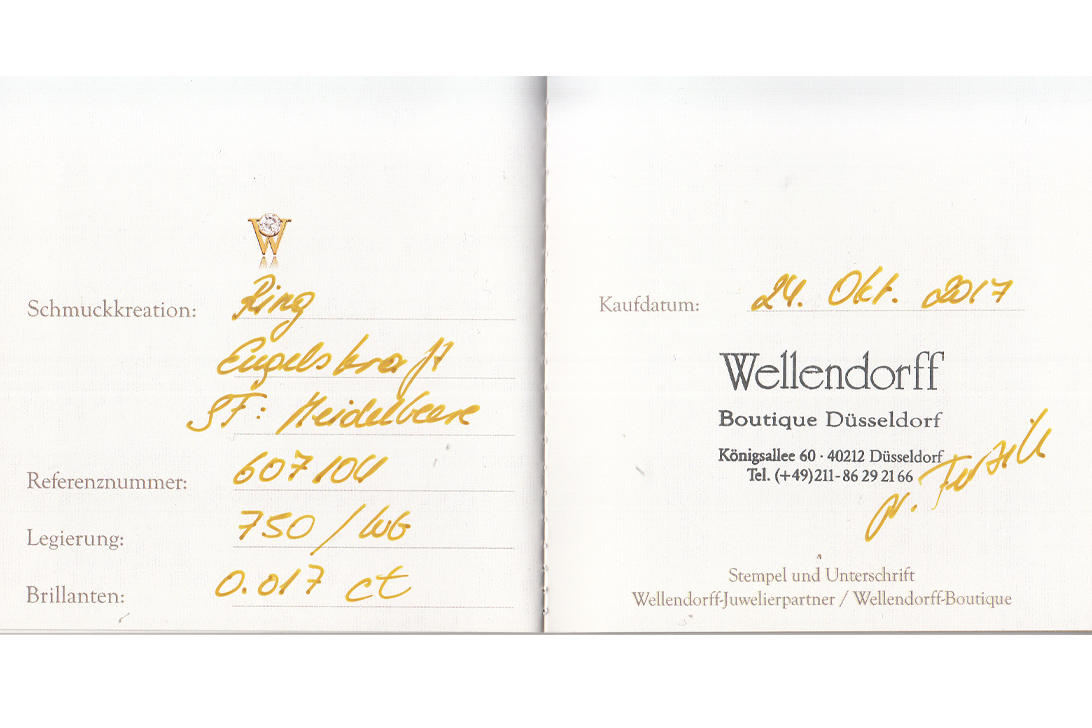 W
Schmuckkreation: Ring
Engelskraft
SF: Heidelbeere
Referenznummer: 607104
Legierung: 750 / WG
Brillanten: 0.017 ct
Kaufdatum: 24. Okt. 2017
Wellendorff
Boutique Düsseldorf
Königsallee 60 · 40212 Düsseldorf
Tel. (+49)211-86 29 21 66
Stempel und Unterschrift
Wellendorff-Juwelierpartner / Wellendorff-Boutique